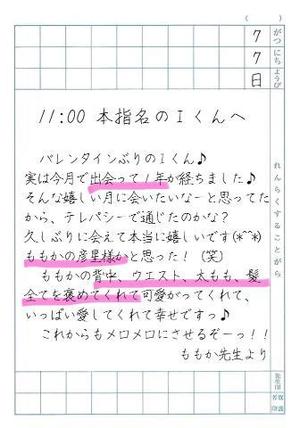 (　)
7 がつ
7 にち
日 ようび
れんらくすることがら
11:00 本指名のIくんへ
バレンタインぶりのIくん♪
実は今月で出会って1年が経ちました♪
そんな嬉しい月に会いたいなーと思ってた
から、テレパシーで通じたのかな?
久しぶりに会えて本当に嬉しいです(*^^*)
ももかの彦星様かと思った!(笑)
ももかの背中、ウエスト、太もも、髪
全てを褒めてくれて可愛がってくれて、
いっぱい愛してくれて幸せですっ♪
これからもメロメロにさせるぞーっ!!
ももか先生より